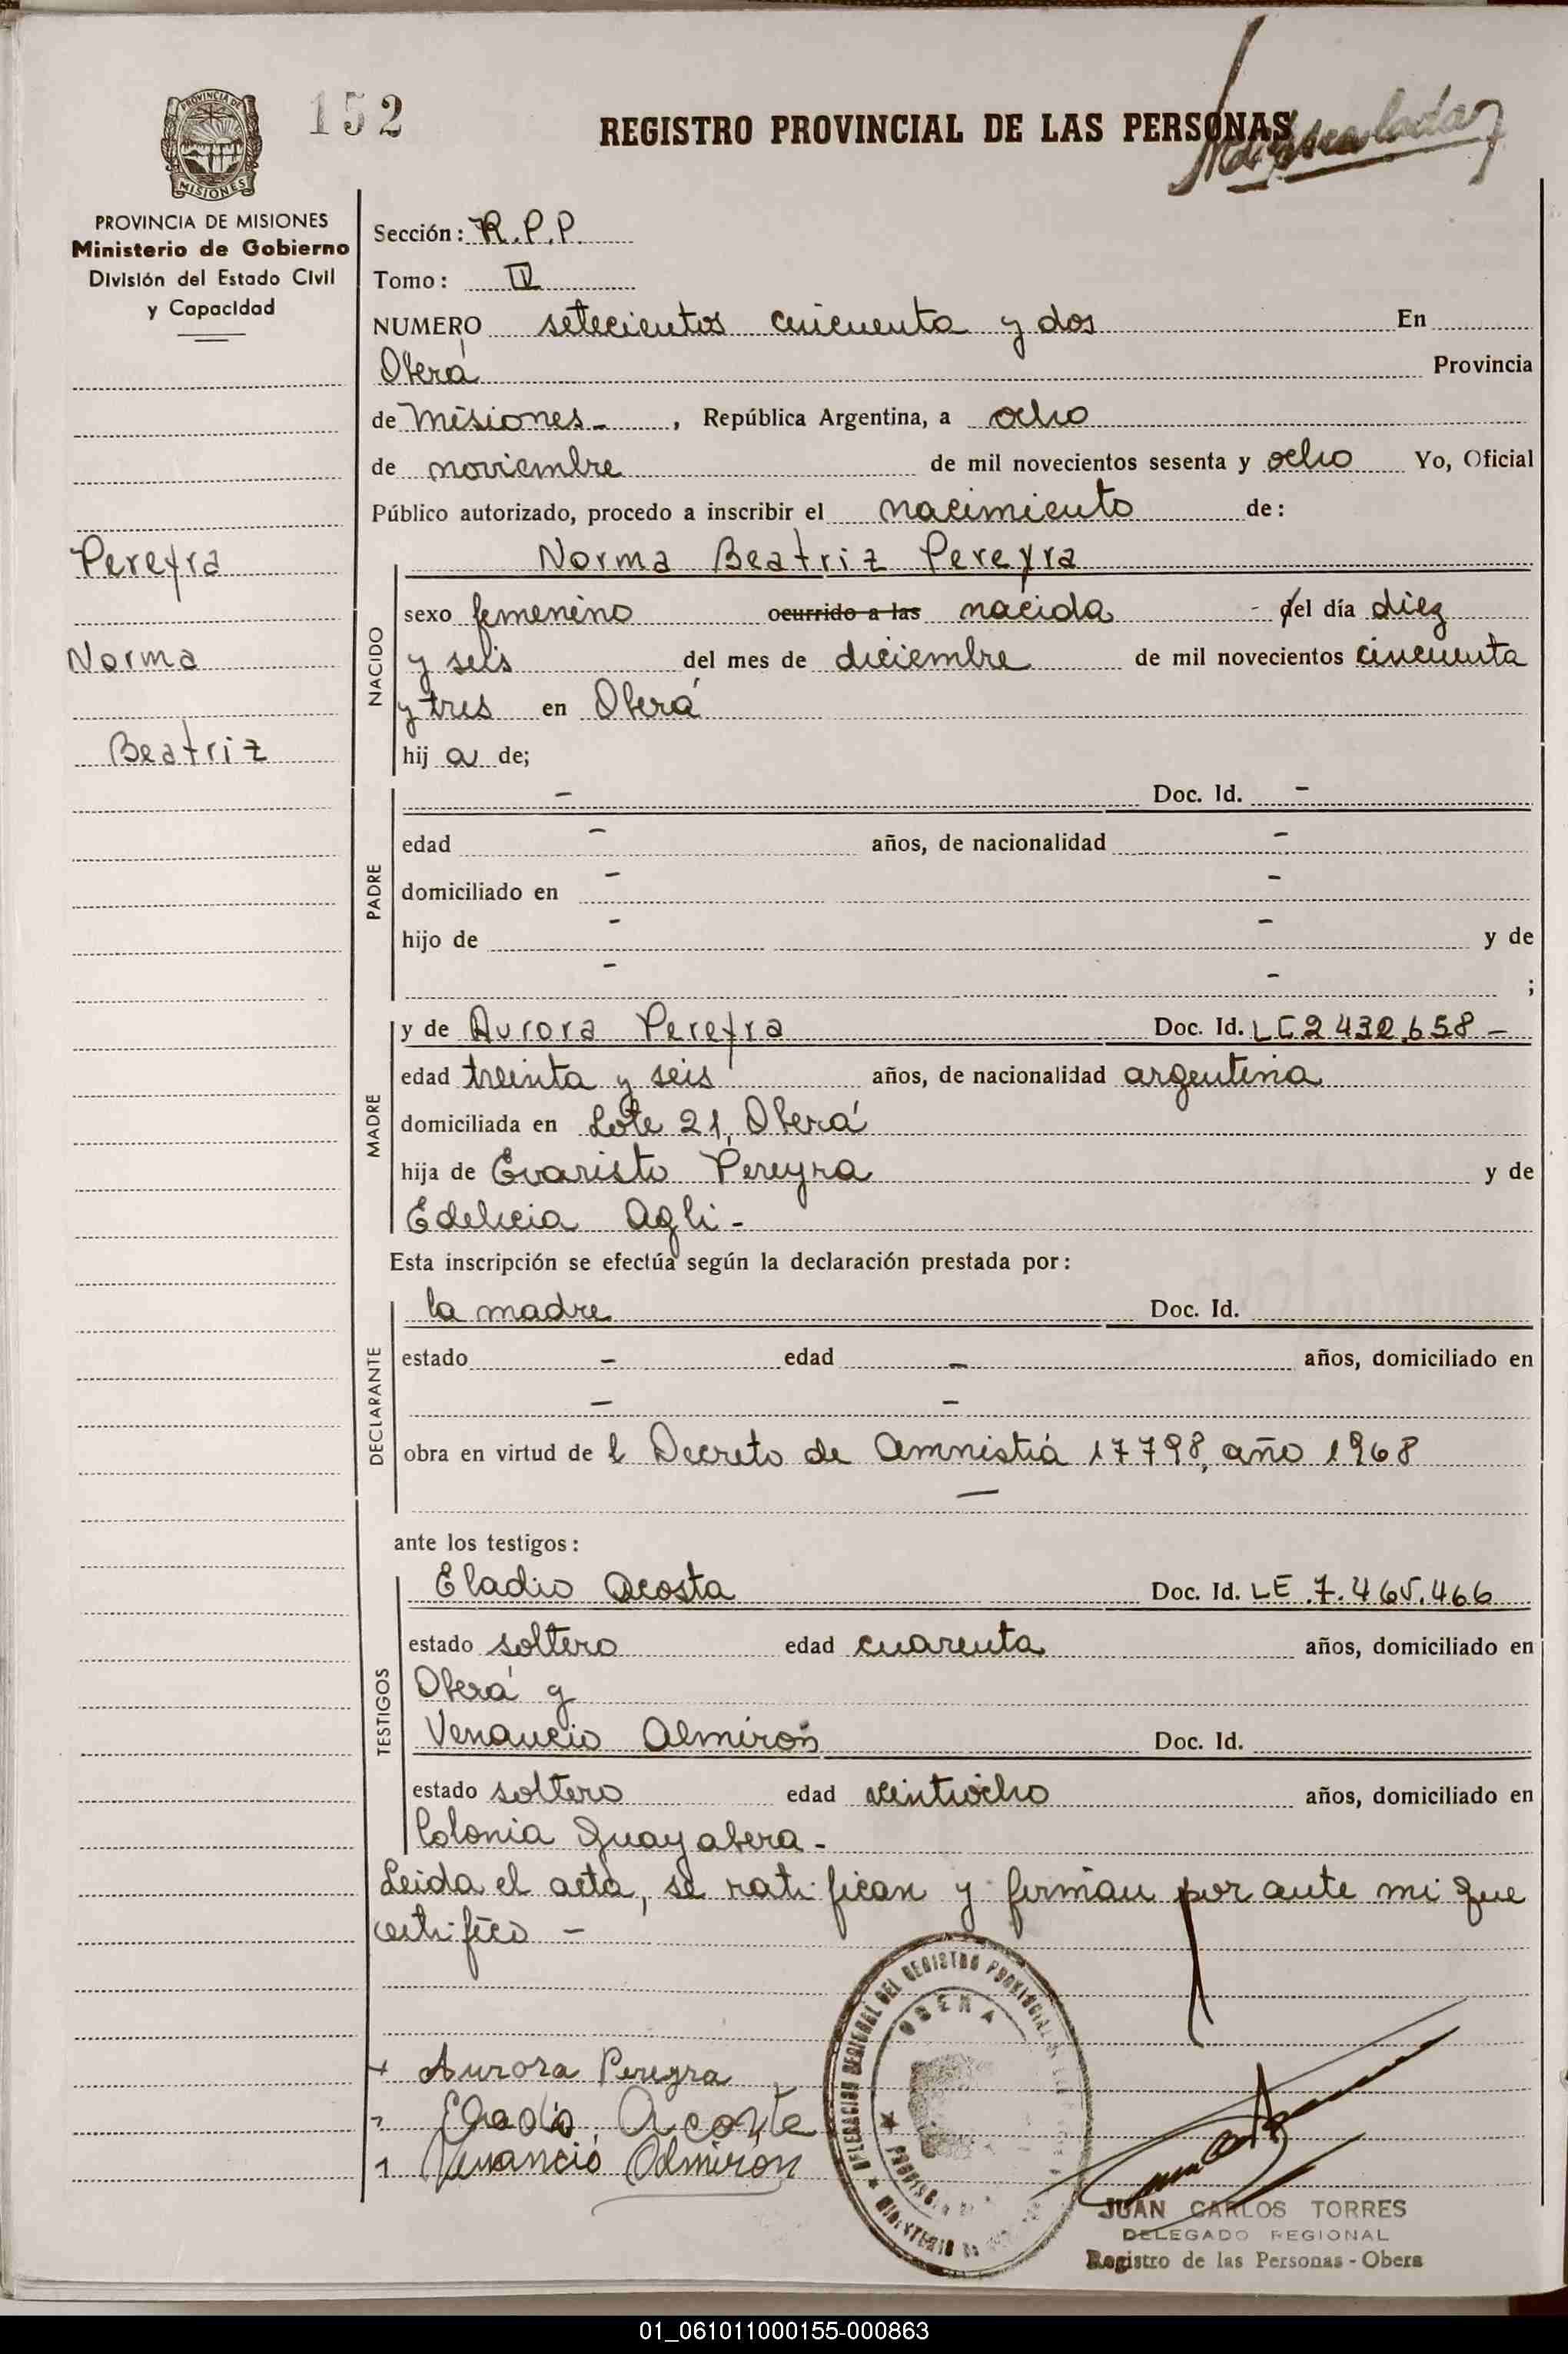 152
REGISTRO PROVINCIAL DE LAS PERSONAS
PROVINCIA DE MISIONES
MISIONES
PROVINCIA DE MISIONES
Ministerio de Gobierno
División del Estado Civil
y Capacidad
Pereyra
Norma
Beatriz
Sección: R.P.P.
Tomo: IV
NUMERO setecientos cincuenta y dos En
Oberá Provincia
de Misiones - , República Argentina, a ocho
de noviembre de mil novecientos sesenta y ocho Yo, Oficial
Público autorizado, procedo a inscribir el nacimiento de:
NACIDO
Norma Beatriz Pereyra
sexo femenino ocurrido a las nacida - del día diez
y seis del mes de diciembre de mil novecientos cincuenta
y tres en Oberá
hij a de;
PADRE
- Doc. Id. -
edad - años, de nacionalidad -
domiciliado en - -
hijo de - - y de
- - ;
MADRE
y de Aurora Pereyra Doc. Id. LC 2432.658 -
edad treinta y seis años, de nacionalidad argentina
domiciliada en Lote 21, Oberá
hija de Evaristo Pereyra y de
Edelicia Agli -
Esta inscripción se efectúa según la declaración prestada por:
DECLARANTE
la madre Doc. Id.
estado - edad - años, domiciliado en
- -
obra en virtud de l Decreto de Amnistiá 17798, año 1968
-
ante los testigos:
TESTIGOS
Eladio Acosta Doc. Id. LE 7.465.466
estado soltero edad cuarenta años, domiciliado en
Oberá y
Venancio Almirón Doc. Id.
estado soltero edad veintiocho años, domiciliado en
Colonia Guayabera -
Leida el acta, se ratifican y firman por ante mi que
certifico -
Aurora Pereyra
Eladio Acosta
Venancio Almirón
DELEGACION REGIONAL DEL REGISTRO PROVINCIAL DE LAS
OBERA
JUAN CARLOS TORRES
DELEGADO REGIONAL
Registro de las Personas - Obera
01_061011000155-000863